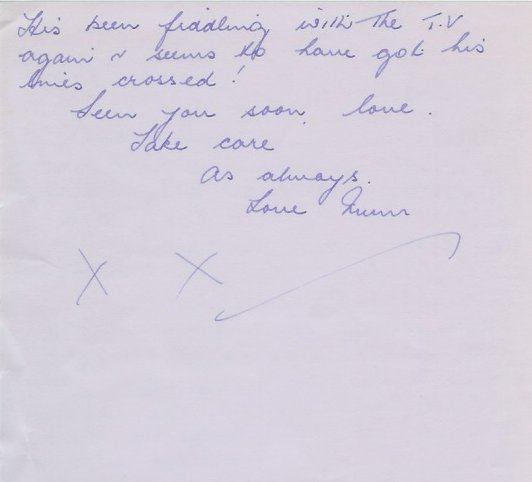 His been fiddling with the T.V
again & seems to have got his
lines crossed!
Seen you soon, love.
Take care
As always.
Love Mum
X X